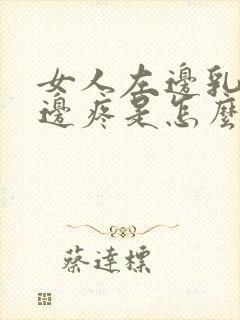 女人左邊乳
邊疼是怎麼
蔡達標